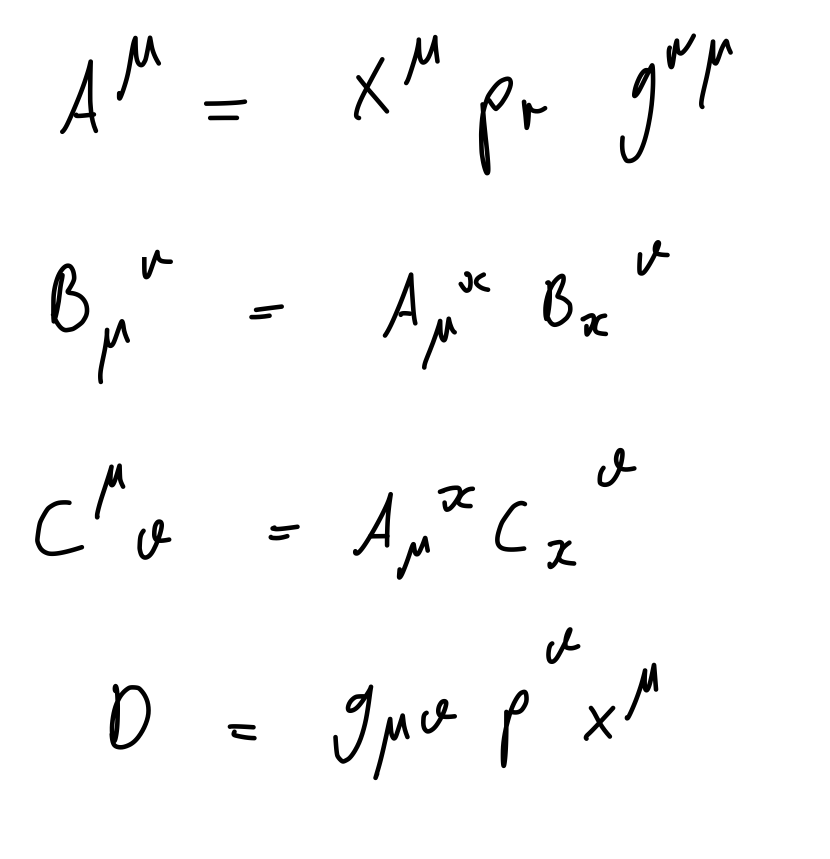 A^μ = x^μ p_ν g^{νμ}
B_μ^ν = A_μ^x B_x^ν
C^μ_ν = A_μ^x C_x^ν
D = g_{μν} p^ν x^μ